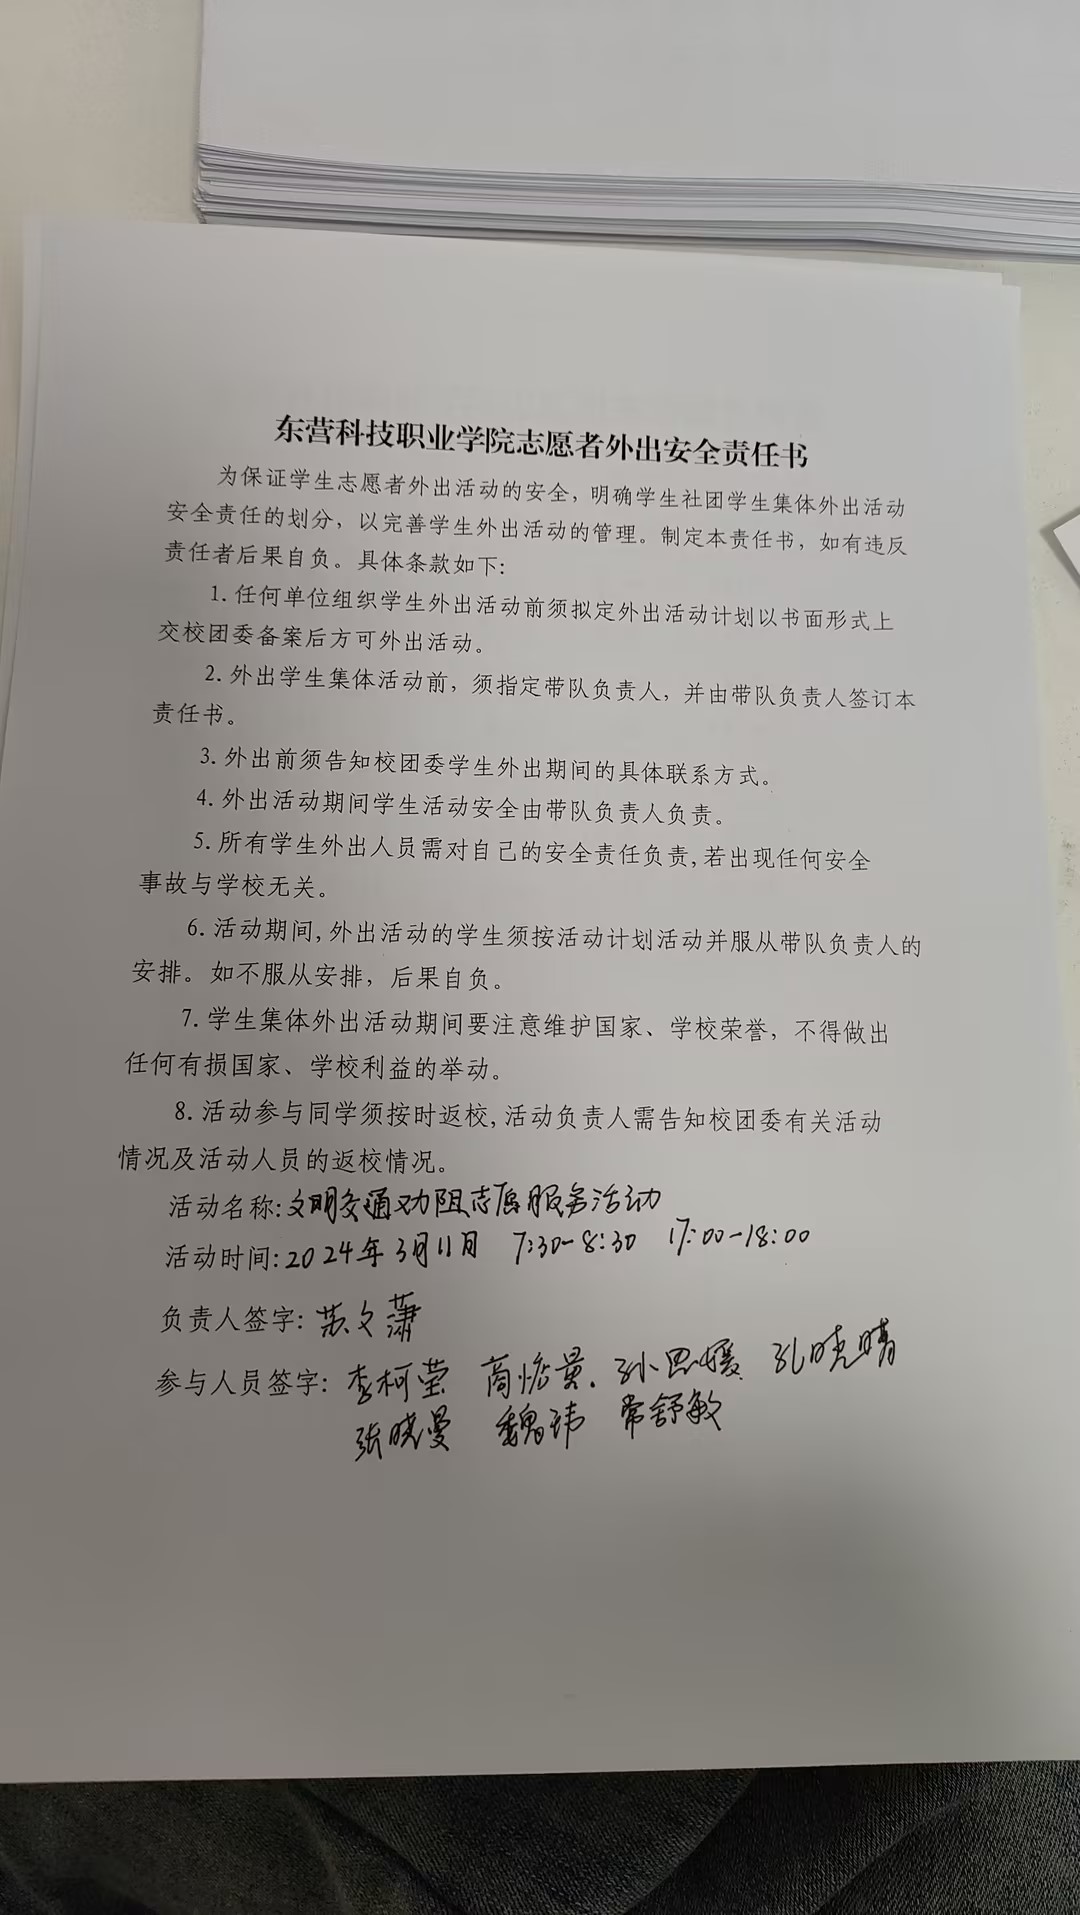 东营科技职业学院志愿者外出安全责任书
为保证学生志愿者外出活动的安全，明确学生社团学生集体外出活动
安全责任的划分，以完善学生外出活动的管理。制定本责任书，如有违反
责任者后果自负。具体条款如下：
1. 任何单位组织学生外出活动前须拟定外出活动计划以书面形式上
交校团委备案后方可外出活动。
2. 外出学生集体活动前，须指定带队负责人，并由带队负责人签订本
责任书。
3. 外出前须告知校团委学生外出期间的具体联系方式。
4. 外出活动期间学生活动安全由带队负责人负责。
5. 所有学生外出人员需对自己的安全责任负责,若出现任何安全
事故与学校无关。
6. 活动期间,外出活动的学生须按活动计划活动并服从带队负责人的
安排。如不服从安排，后果自负。
7. 学生集体外出活动期间要注意维护国家、学校荣誉，不得做出
任何有损国家、学校利益的举动。
8. 活动参与同学须按时返校,活动负责人需告知校团委有关活动
情况及活动人员的返校情况。
活动名称:文明交通劝阻志愿服务活动
活动时间:2024年3月11日 7:30-8:30 17:00-18:00
负责人签字:苏文萧
参与人员签字: 李柯莹 孙思媛 孔晓晴
张晓曼 魏玮 常舒敏